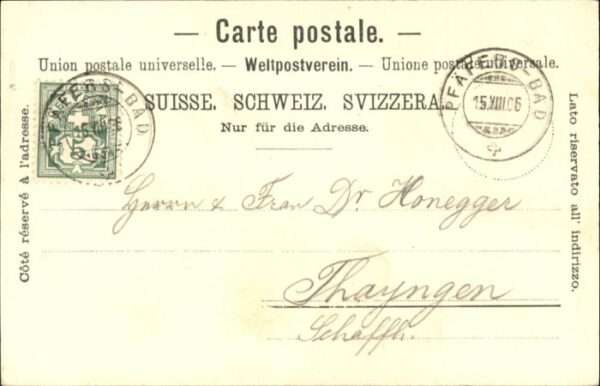 — Carte postale. —
Union postale universelle. — Weltpostverein. — Unione postale universale.
SUISSE. SCHWEIZ. SVIZZERA.
Nur für die Adresse.
Côté réservé à l'adresse.
Lato riservato all' indirizzo.
PFÄFERS-BAD
PFÄFERS-BAD
Herrn & Frau Dr Honegger
Thayngen
Schaffh.